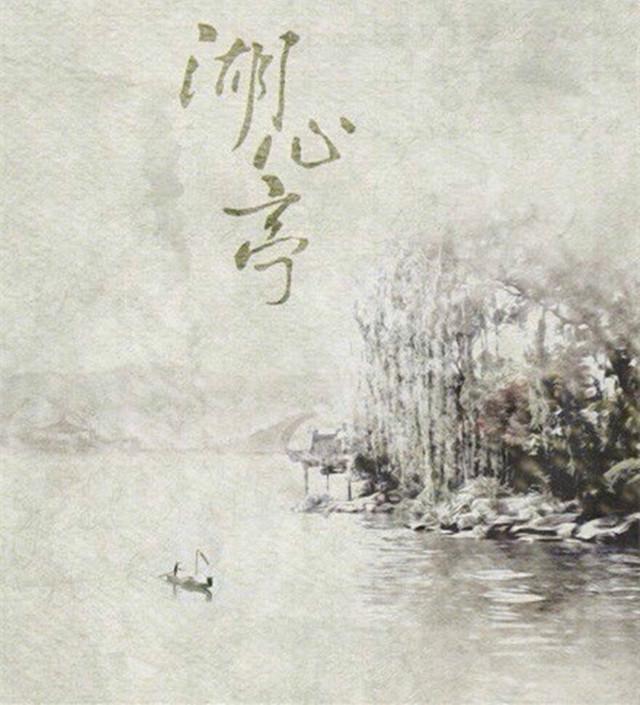 湖心亭